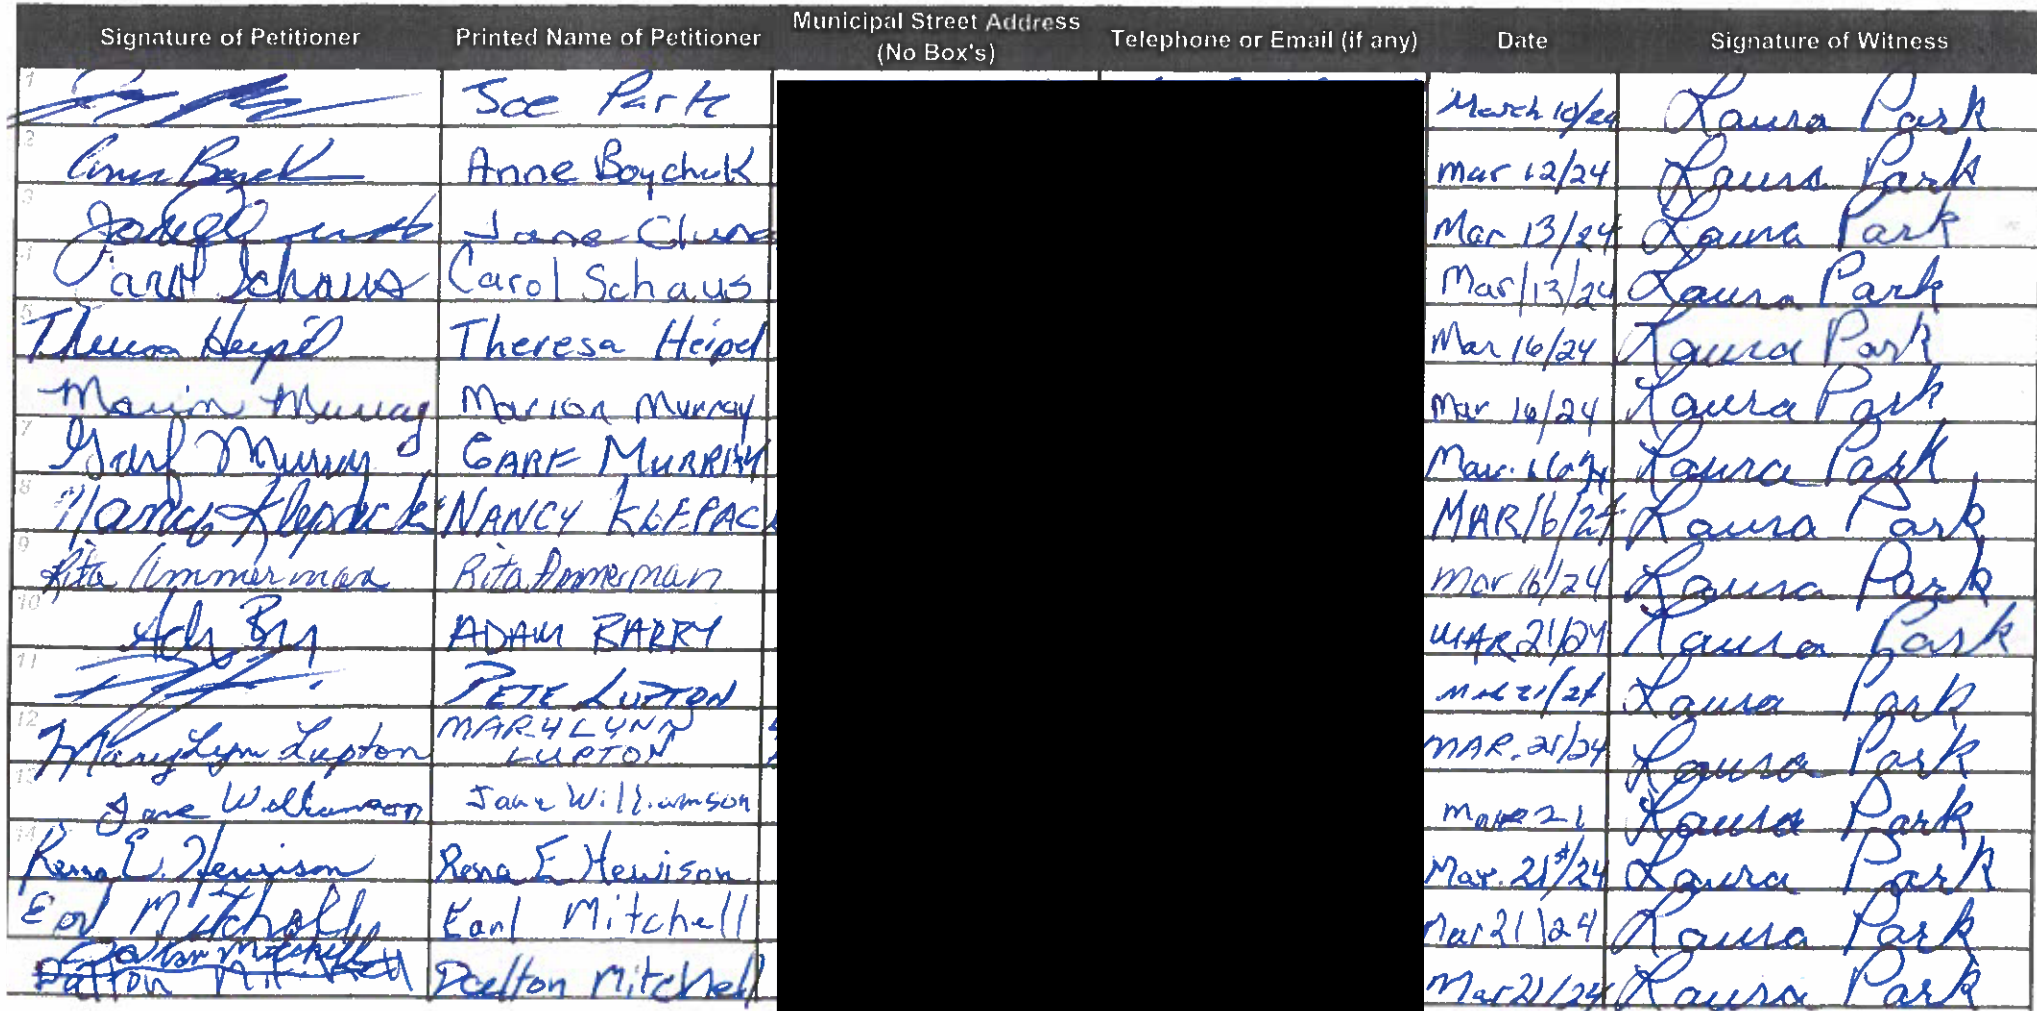 Signature of Petitioner Printed Name of Petitioner Municipal Street Address (No Box's) Telephone or Email (if any) Date Signature of Witness
1 Joe Park March 10/24 Laura Park
2 Anne Boychuk Mar 12/24 Laura Park
3 Jane Mar 13/24 Laura Park
4 Carol Schaus Carol Schaus Mar/13/24 Laura Park
5 Theresa Heipel Theresa Heipel Mar 16/24 Laura Park
Marion Murray Marion Murray Mar 16/24 Laura Park
7 Garf Murray GARF MURRAY Mar. 16/24 Laura Park
8 Nancy Klepack NANCY KLEPAC MAR/16/24 Laura Park
9 Rita Ammerman Rita Ammerman Mar 16/24 Laura Park
10 ADAM BARRY MAR 21/24 Laura Park
11 PETE LUPTON Mar 21/24 Laura Park
12 MaryLynn Lupton MARYLYNN LUPTON MAR. 21/24 Laura Park
13 Jane Williamson Jane Williamson Mar 21 Laura Park
14 Rena E. Hewison Rena E Hewison Mar. 21st/24 Laura Park
Earl Mitchell Earl Mitchell Mar 21/24 Laura Park
Dalton Mitchell Dalton Mitchell Mar 21/24 Laura Park